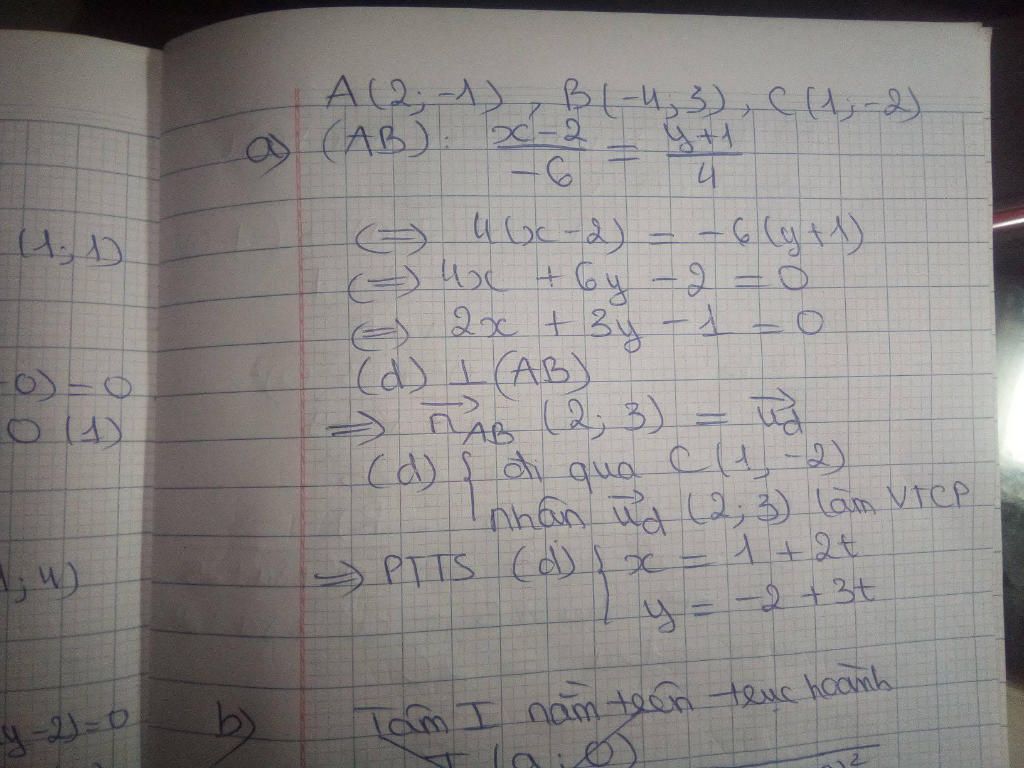 A(2; -1), B(-4; 3), C(1; -2)
a) (AB): (x-2)/(-6) = (y+1)/4
(1; 1)
⇔ 4(x-2) = -6(y+1)
⇔ 4x + 6y - 2 = 0
⇔ 2x + 3y - 1 = 0
0) = 0
(d) ⊥ (AB)
0 (1)
⇒ n⃗AB (2; 3) = u⃗d
(d) { đi qua C(1; -2)
nhận u⃗d (2; 3) làm VTCP
; 4)
⇒ PTTS (d) { x = 1 + 2t
y = -2 + 3t
y-2) = 0
b) Tâm I nằm trên trục hoành
I (a; 0)